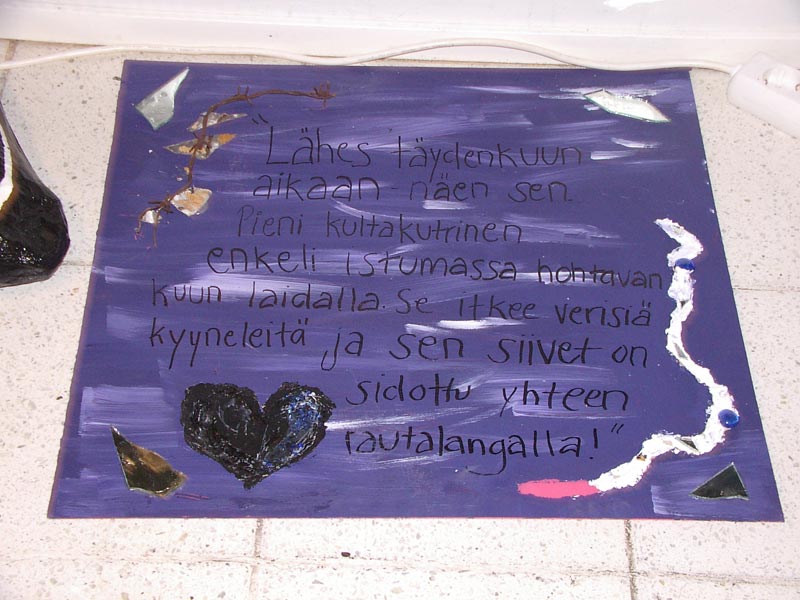 "Lähes täydenkuun
aikaan näen sen.
Pieni kultakutrinen
enkeli istumassa hohtavan
kuun laidalla. Se itkee verisiä
kyyneleitä ja sen siivet on
sidottu yhteen
rautalangalla!"